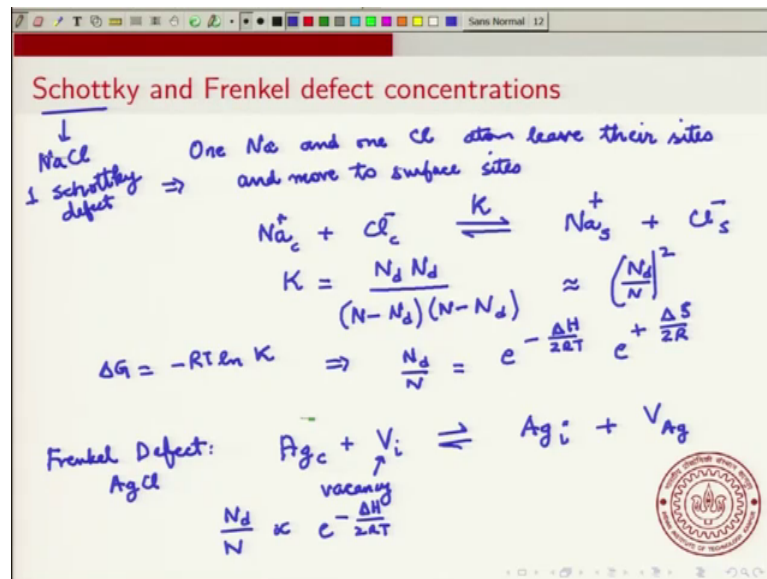 Sans Normal 12
Schottky and Frenkel defect concentrations
NaCl
1 schottky defect ⇒ One Na and one Cl atom leave their sites
and move to surface sites
Na⁺c + Cl⁻c ⇌ Na⁺s + Cl⁻s
K
K = Nd Nd / (N-Nd)(N-Nd) ≈ (Nd/N)²
ΔG = -RT ln K ⇒ Nd/N = e^(-ΔH/2RT) e^(+ΔS/2R)
Frenkel Defect: Agc + Vi ⇌ Agi + VAg
AgCl
vacancy
Nd/N ∝ e^(-ΔH/2RT)